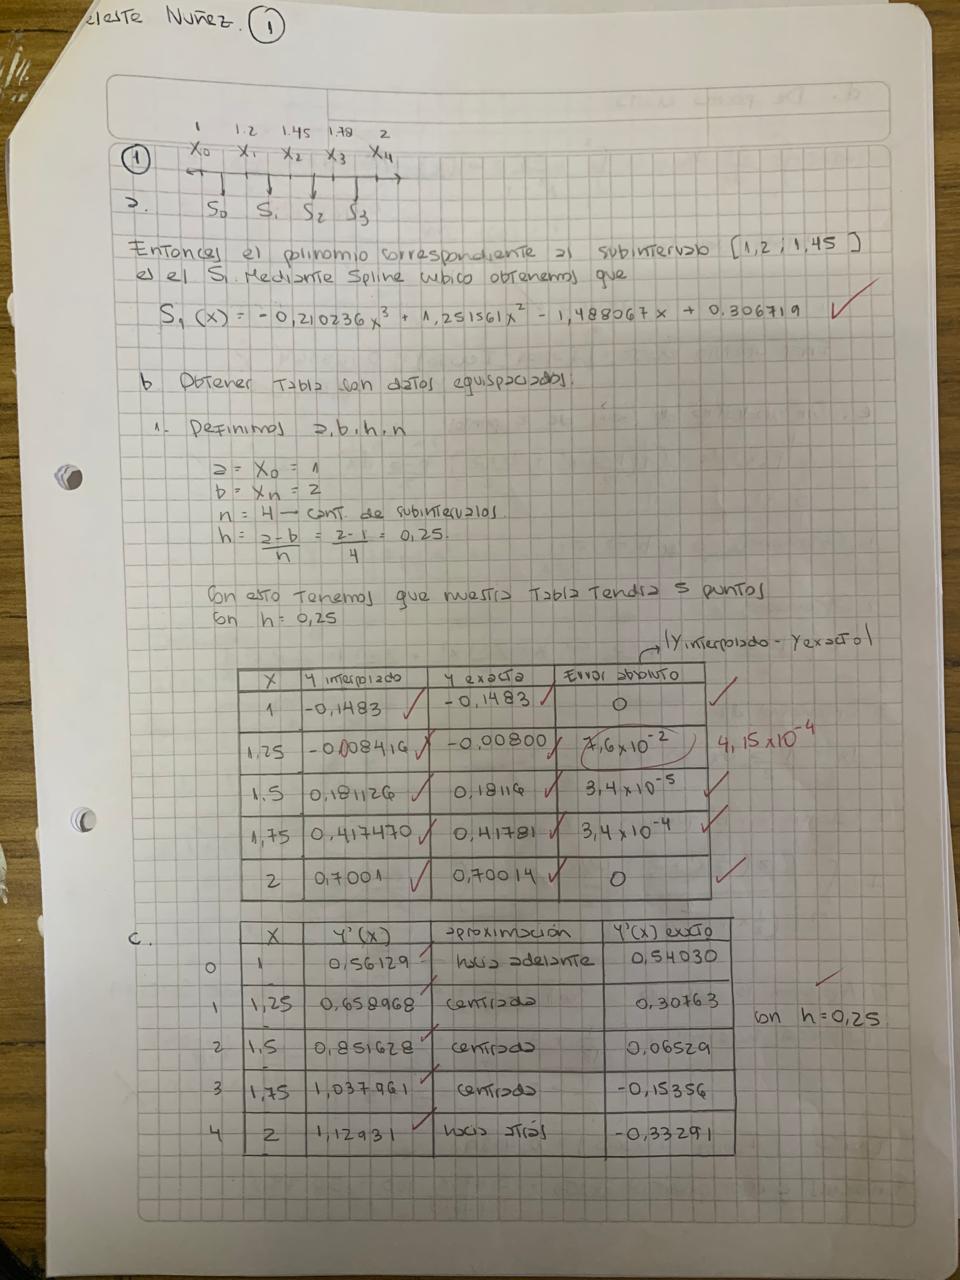 eleste Nuñez. 1
1 1.2 1.45 1.78 2
1 X0 X1 X2 X3 X4
a. S0 S1 S2 S3
Entonces el polinomio correspondiente al subintervalo [1,2 ; 1,45]
es el S1 Mediante Spline cubico obtenemos que
S1 (x) = - 0,210236x³ + 1,251561x² - 1,488067x + 0.306719 ✓
b Obtener Tabla con datos equispaciados:
1- Definimos a,b,h,n
a = X0 = 1
b = Xn = 2
n = 4 — cant. de subintervalos
h = a-b/n = 2-1/4 = 0,25.
Con esto tenemos que nuestra Tabla Tendra 5 puntos
Con h = 0,25
|Yinterpolado - Yexacto|
X Y interpolado Y exacta Error absoluto
1 -0,1483 ✓ -0,1483 ✓ 0 ✓
1,25 -0.008416 ✓ -0,00800 ✓ 7,6x10⁻² 4,15x10⁻⁴
1.5 0,181126 ✓ 0,18116 ✓ 3,4x10⁻⁵ ✓
1,75 0,417470 ✓ 0,41781 ✓ 3,4x10⁻⁴ ✓
2 0,7001 ✓ 0,70014 ✓ 0 ✓
c. X Y'(X) aproximación Y'(X) exacto
0 1 0,56129 ✓ hacia adelante 0,54030
1 1,25 0,658968 ✓ centrada 0,30763 ✓
con h=0,25
2 1,5 0,851628 ✓ centrada 0,06529
3 1,75 1,037961 ✓ centrada -0,15356
4 2 1,12931 ✓ hacia atrás -0,33291